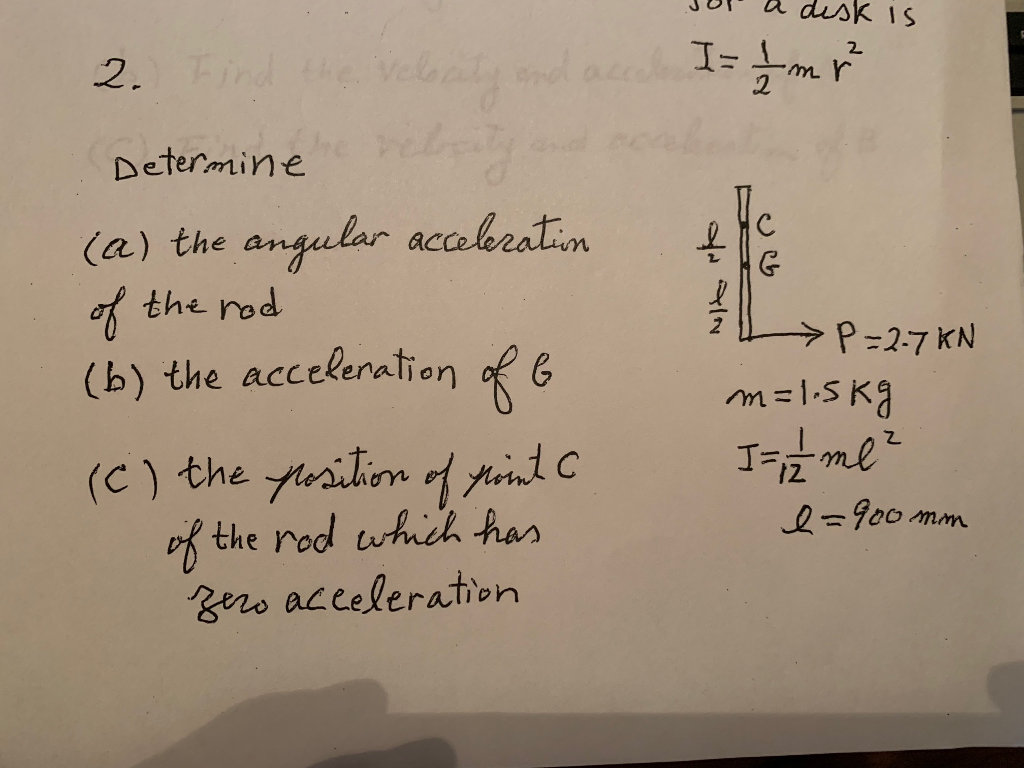 for a disk is
I = 1/2 m r²
2.
Determine
(a) the angular acceleration
of the rod
(b) the acceleration of G
(C) the position of point C
of the rod which has
zero acceleration
l/2
C
G
l/2
P = 2.7 KN
m = 1.5 Kg
I = 1/12 ml²
l = 900 mm